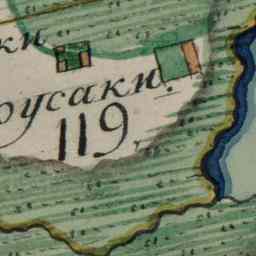 ки
русаки.
119